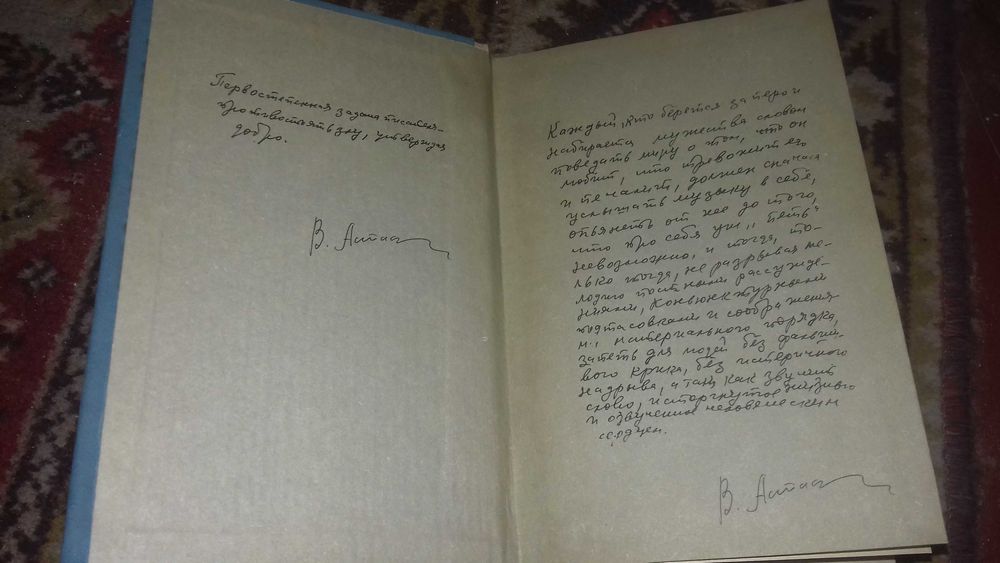 Первостепенная задача писателя –
противостоять злу, утверждая
добро.
В. Астаф
Каждый, кто берется за перо и
набирается мужества словом
поведать миру о том, что он
любит, что тревожит его
и печалит, должен сначала
услышать музыку в себе,
опьянеть от нее до того,
что про себя уж „петь"
невозможно, и тогда, то-
лько тогда, не разрывая ме-
лодию постными рассужде-
ниями, конъюнктурными
подтасовками и соображения-
ми материального порядка,
запеть для людей без фальши-
вого крика, без истеричного
надрыва, а так, как звучит
слово, исторгнутое жизнью
и озвученное человеческим
сердцем.
В. Астаф